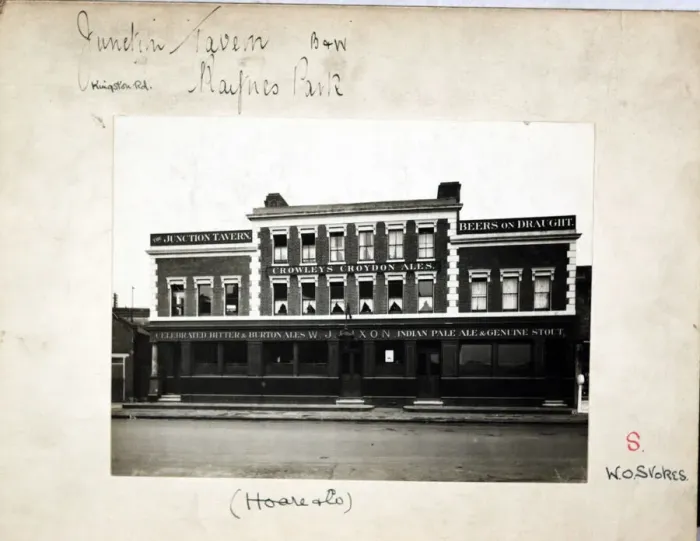 Junction Tavern B+W
Kingston Rd. Raynes Park
THE JUNCTION TAVERN.
BEERS ON DRAUGHT.
CROWLEY'S CROYDON ALES.
CELEBRATED BITTER & BURTON ALES W. J. XON INDIAN PALE ALE & GENUINE STOUT.
S.
W.O. STOKES.
(Hoare & Co)